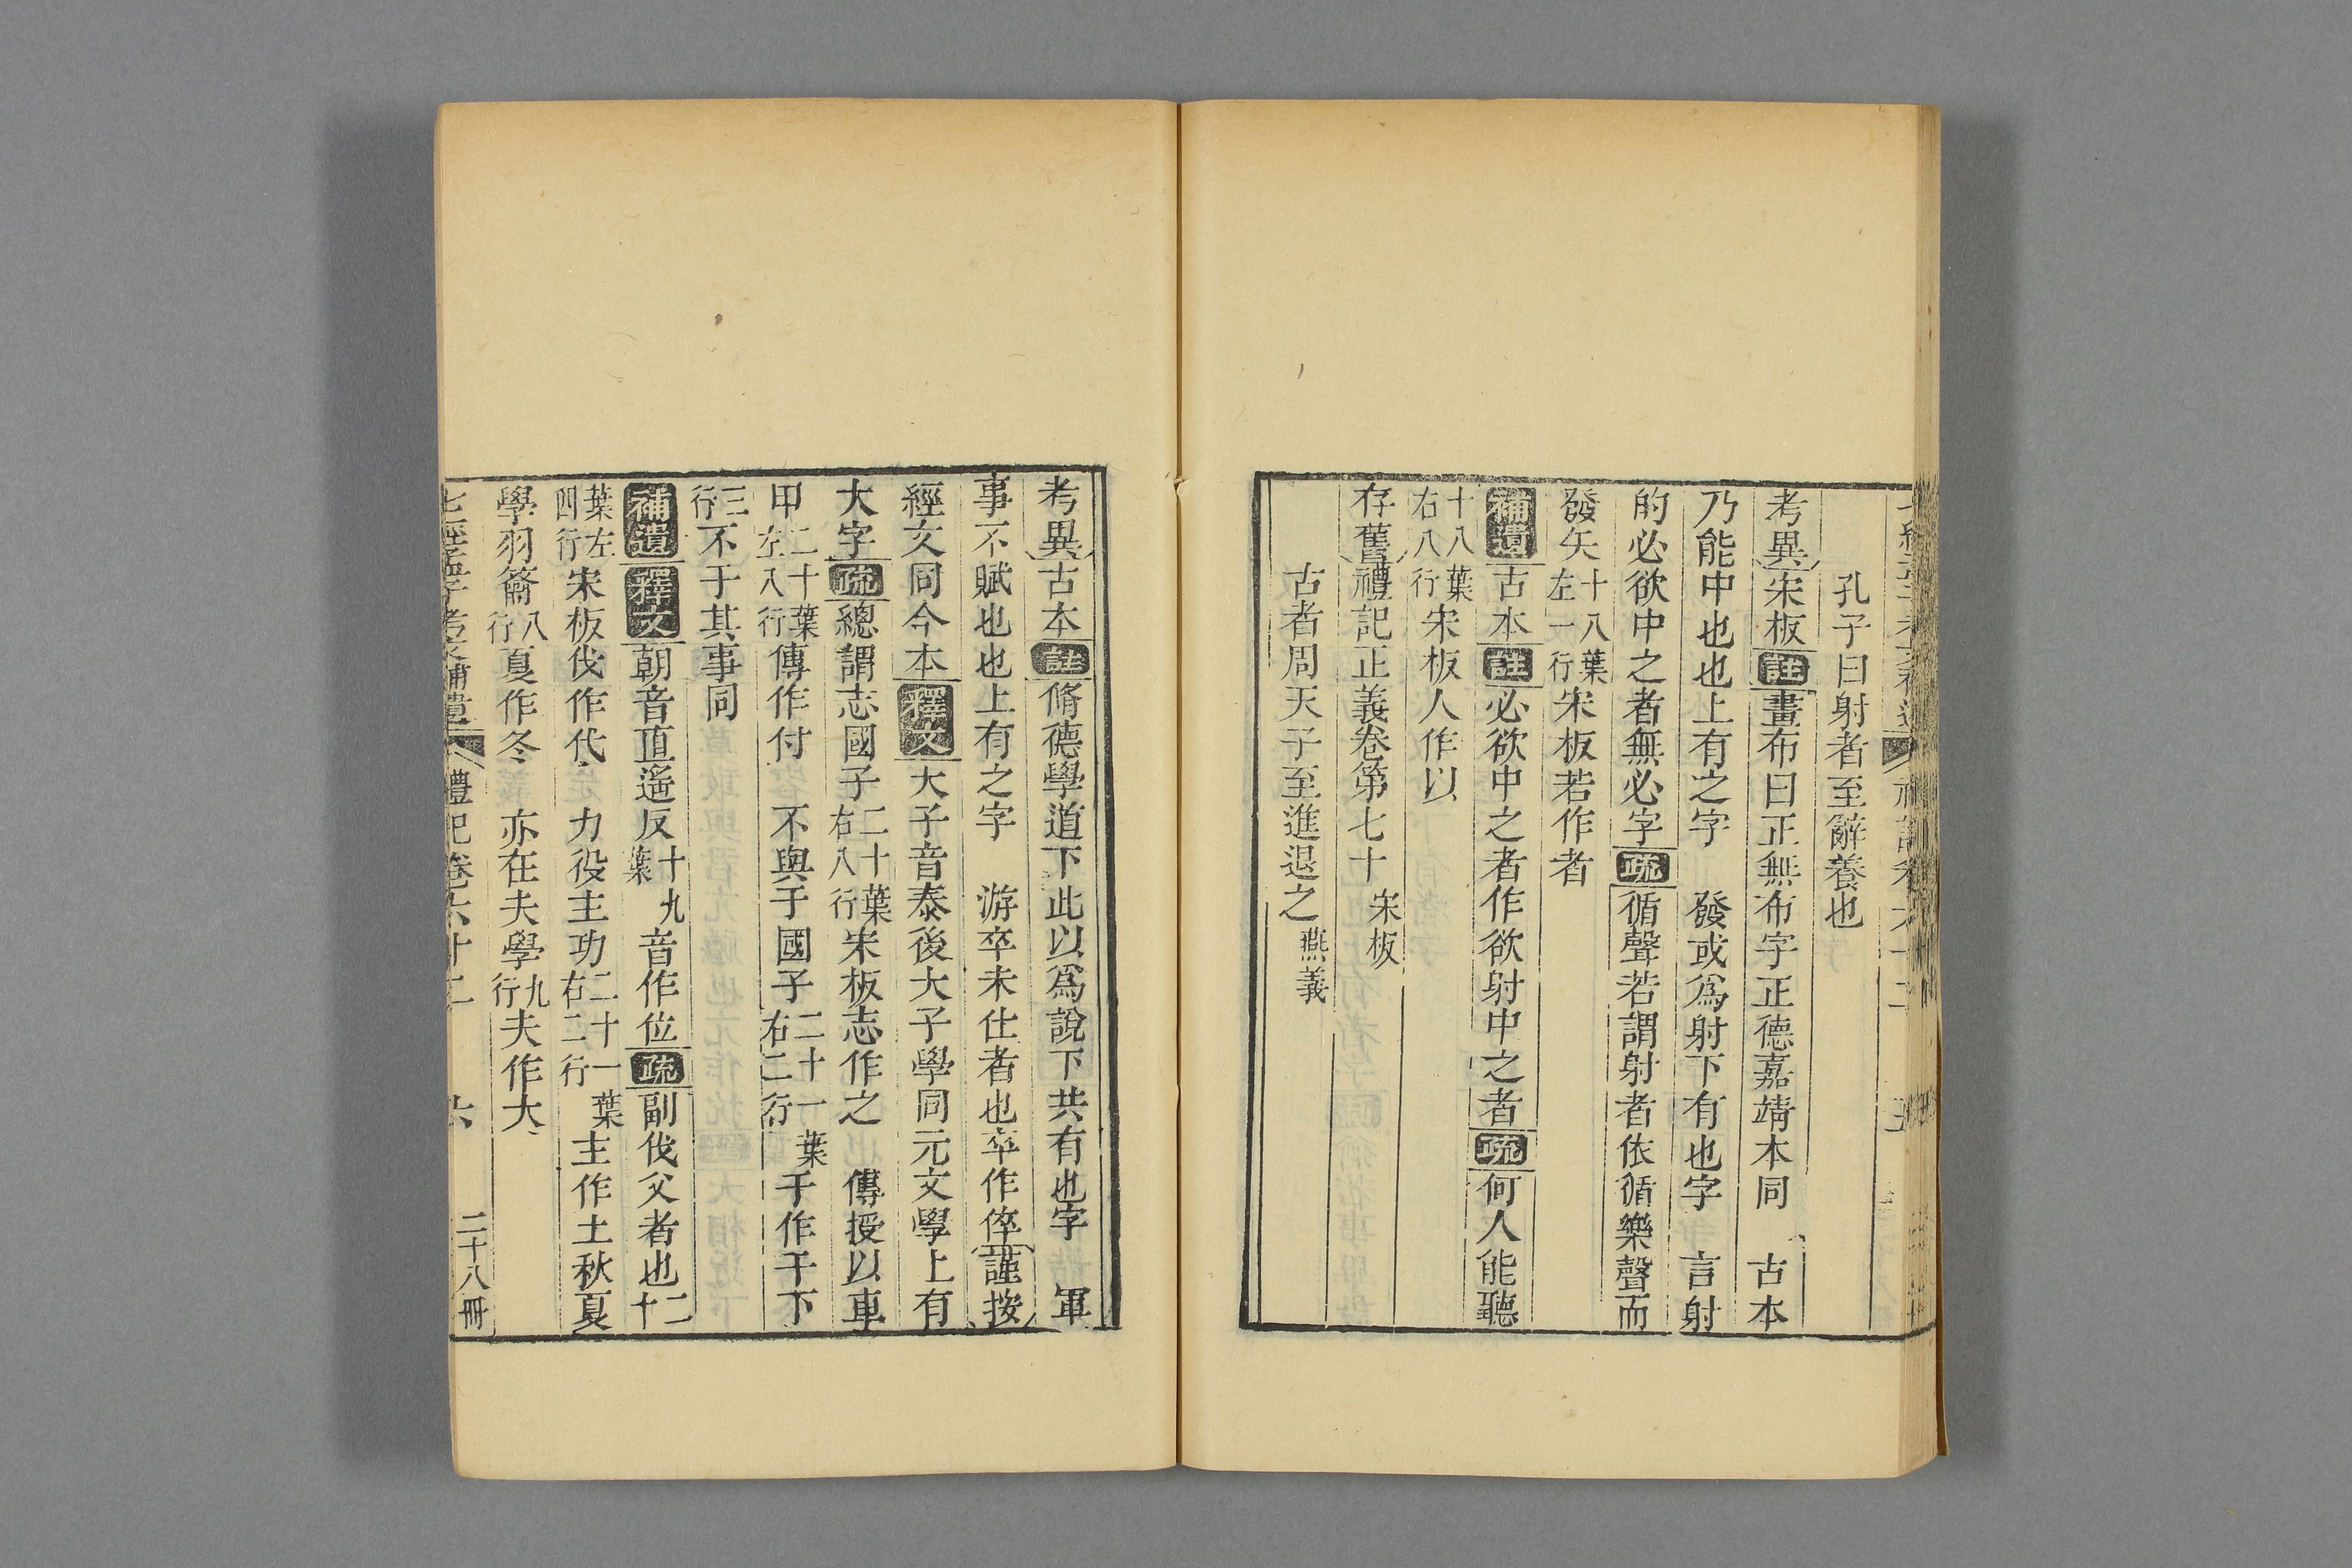 孔子曰射者至辭養也
考異宋板註畫布曰正無布字正德嘉靖本同　古本
乃能中也也上有之字　發或爲射下有也字　言射
的必欲中之者無必字疏循聲若謂射者依循樂聲而
發矢十八葉左一行宋板若作者
補遺古本註必欲中之者作欲射中之者疏何人能聽
十八葉右八行宋板人作以
存舊禮記正義卷第七十宋板
古者周天子至進退之燕義
考異古本註脩德學道下此以爲說下共有也字　軍
事不賦也也上有之字　游卒未仕者也卒作倅謹按
經文同今本釋文大子音泰後大子學同元文學上有
大字疏總謂志國子二十葉右八行宋板志作之　傳授以車
甲二十葉左八行傳作付　不與于國子二十一葉右二行于作干下
三行不于其事同
補遺釋文朝音直遥反十九葉音作位疏副伐父者也二十
葉左四行宋板伐作代　力役主功二十一葉右二行主作土秋夏
學羽籥八行夏作冬　亦在夫學九行夫作大
七經孟子考文補遺　禮記卷六十二　六　二十八冊